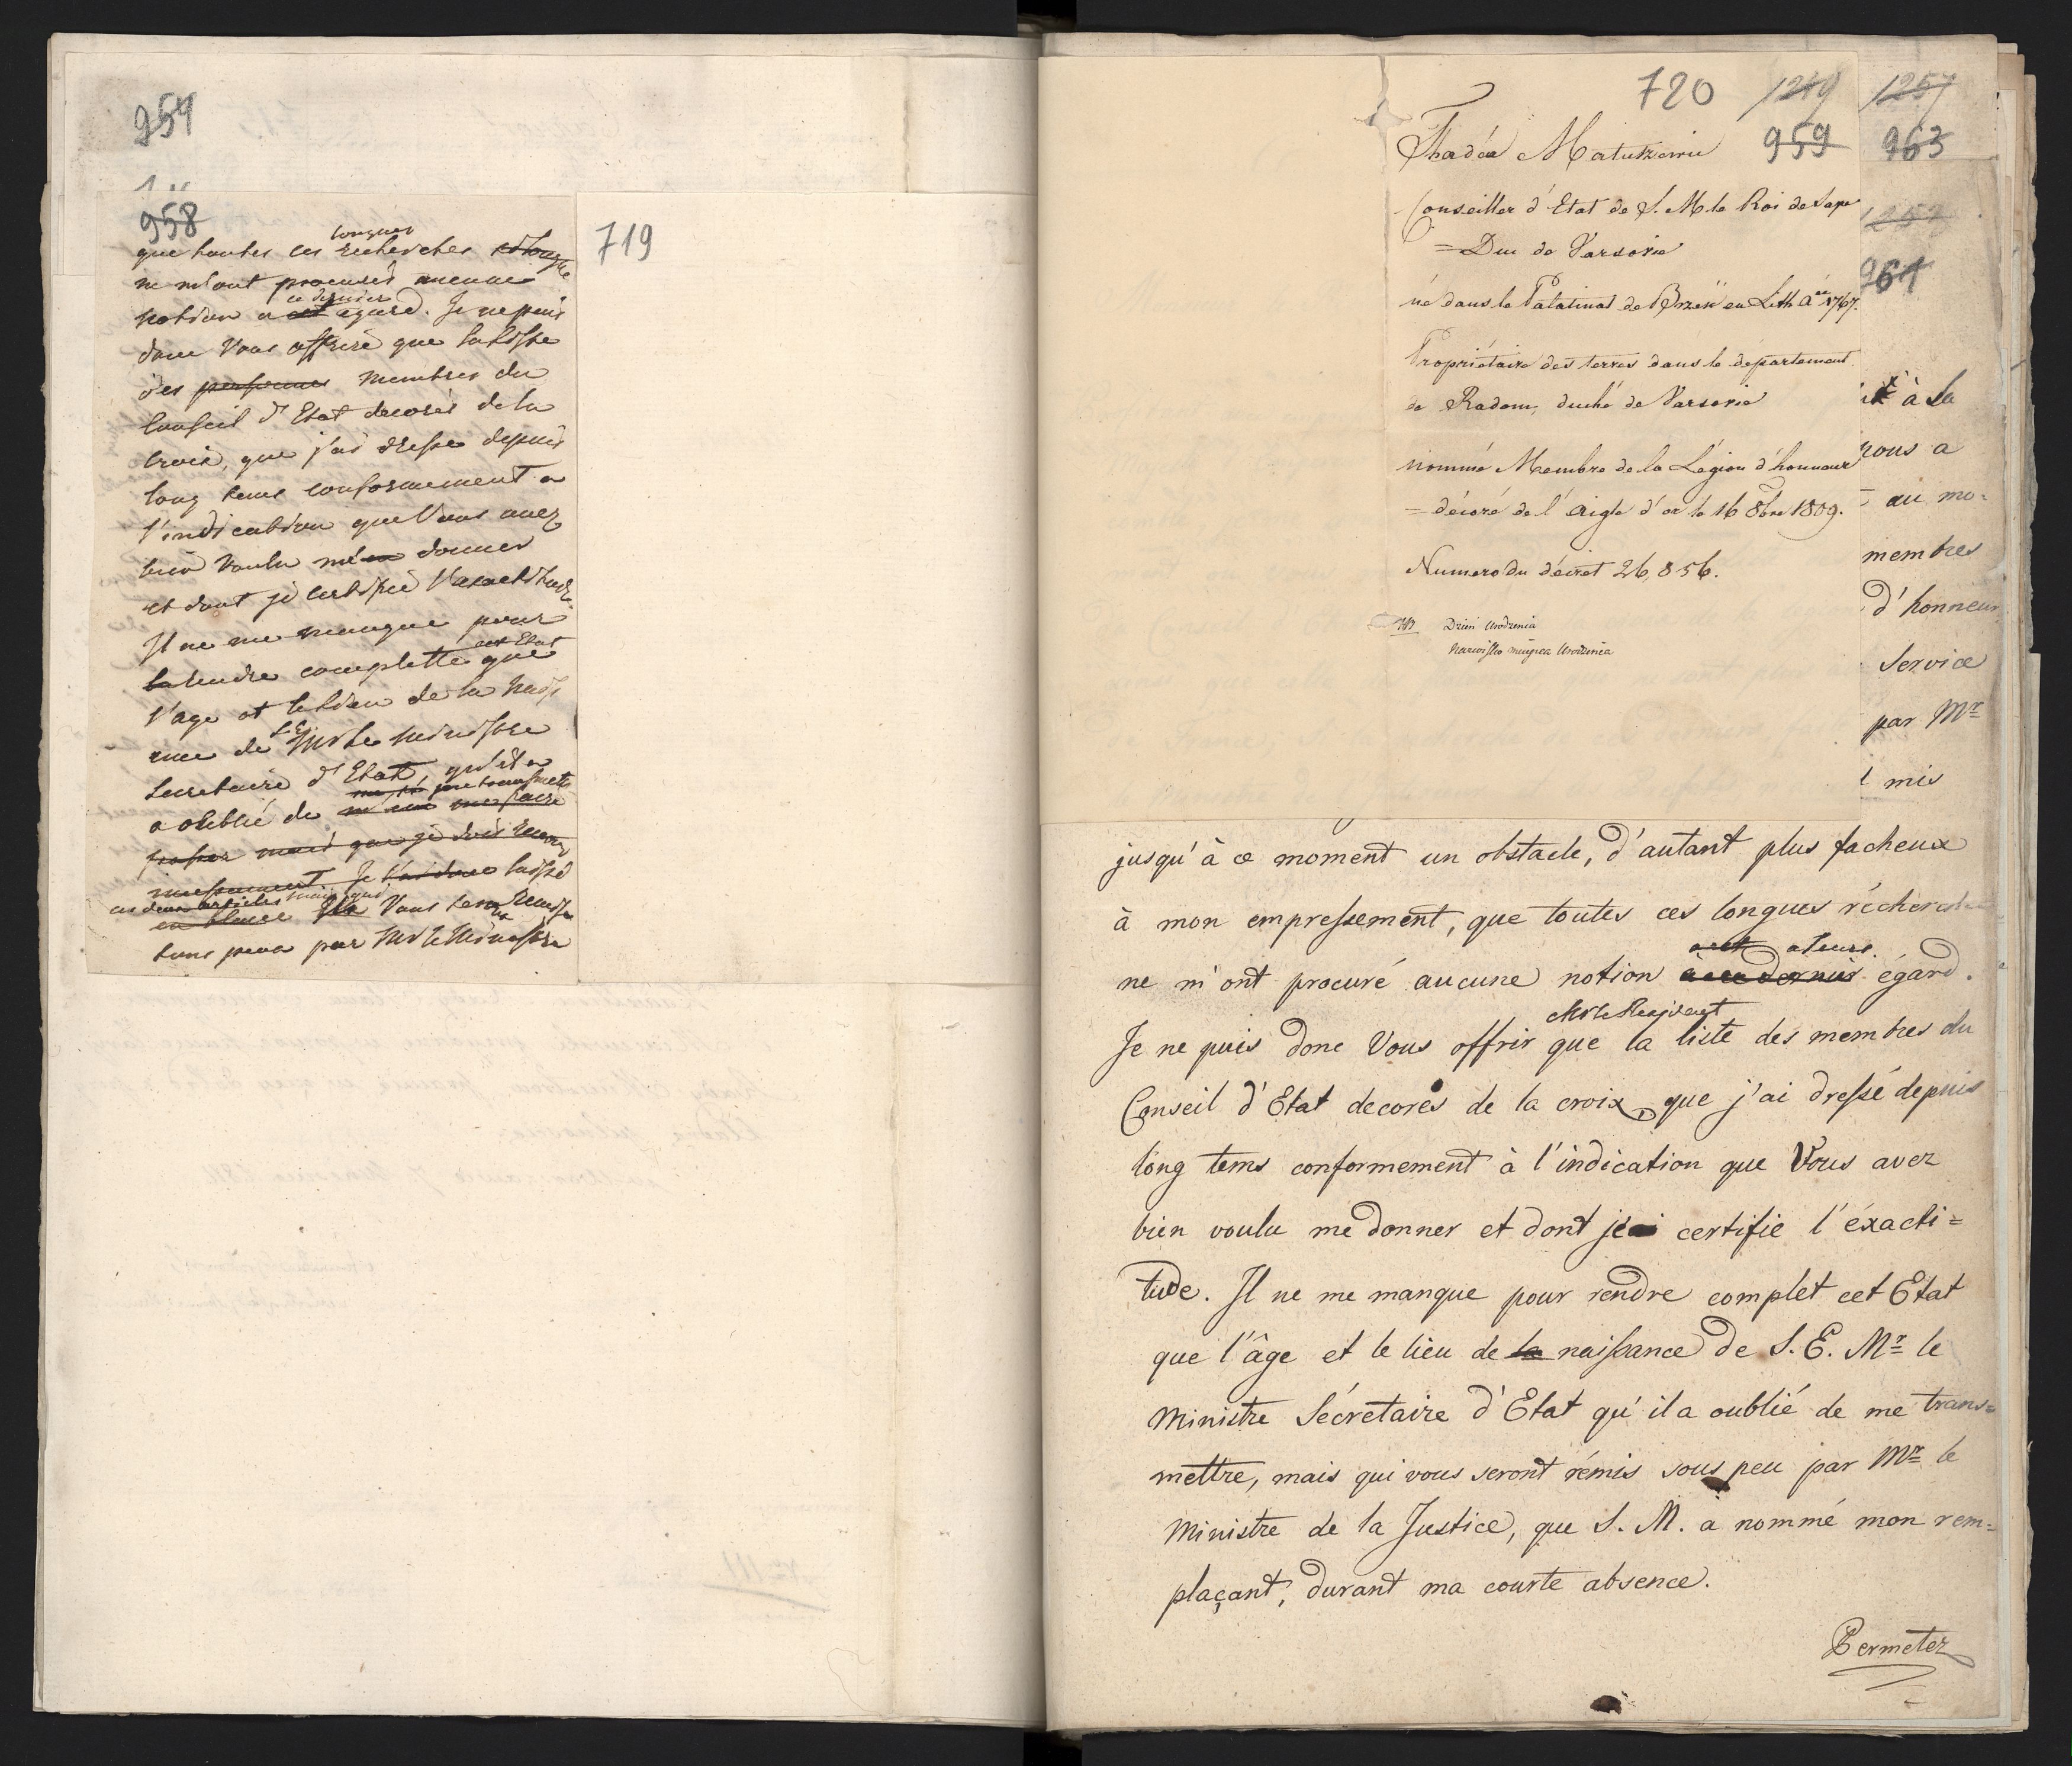 954
958
longues
que toutes ces recherches
ne m'ont procurés aucune
ce dernier
notion a cet égard. Je ne puis
donc Vous offrire que la liste
des personnes membres du
Conseil d'Etat decorés de la
Croix, que j'ai dressé depuis
long tems conformement a
l'indication que Vous avez
bien voulu me donner
et dont je certifie l'exactitude
Il ne me manque pour
cet Etat
la rendre complette que
l'age et le lieu de la nais
S. E.
ance de Mr le Ministre
Secretaire d'Etat, qu'il a
me transmette
a oublié de
passer mais que je dois
incessament. Je l'ai donc laissé
ces deux articles mais qui
en blanc Vous seront remis
sous peu par Mr le Ministre
719
720 1249 1257
959 963
1257
961
Thadéa Matuszewic
Conseiller d'Etat de S. M le Roi de Saxe
= Duc de Varsovie
né dans le Palatinat de Brześć en Lith. 1767.
Propriétaire des terres dans le département
de Radom, duché de Varsovie
nommé Membre de la Légion d'honneur
= décoré de l'Aigle d'or le 16 8bre 1809.
Numero du décret 26,856.
NB Dzień Urodzenia
Nazwisko mieysca Urodzenia
à la
vous a
au mo-
membres
d'honneur
Service
par Mr
mis
jusqu'à ce moment un obstacle, d'autant plus facheux
à mon empressement, que toutes ces longues récherches
ne m'ont procuré aucune notion à ce dernier égard.
Mr le Resident
Je ne puis donc Vous offrir que la liste des membres du
Conseil d'Etat decorés de la croix, que j'ai dressé depuis
long tems conformement à l'indication que Vous avez
bien voulu me donner et dont je certifie l'éxacti=
tude. Il ne me manque pour rendre complet cet Etat
que l'âge et le lieu de la naissance de S. E. Mr le
Ministre Sécretaire d'Etat qu'il a oublié de me trans=
mettre, mais qui vous seront rémis sous peu par Mr le
Ministre de la Justice, que S. M. a nommé mon rem=
plaçant, durant ma courte absence.
Permetez